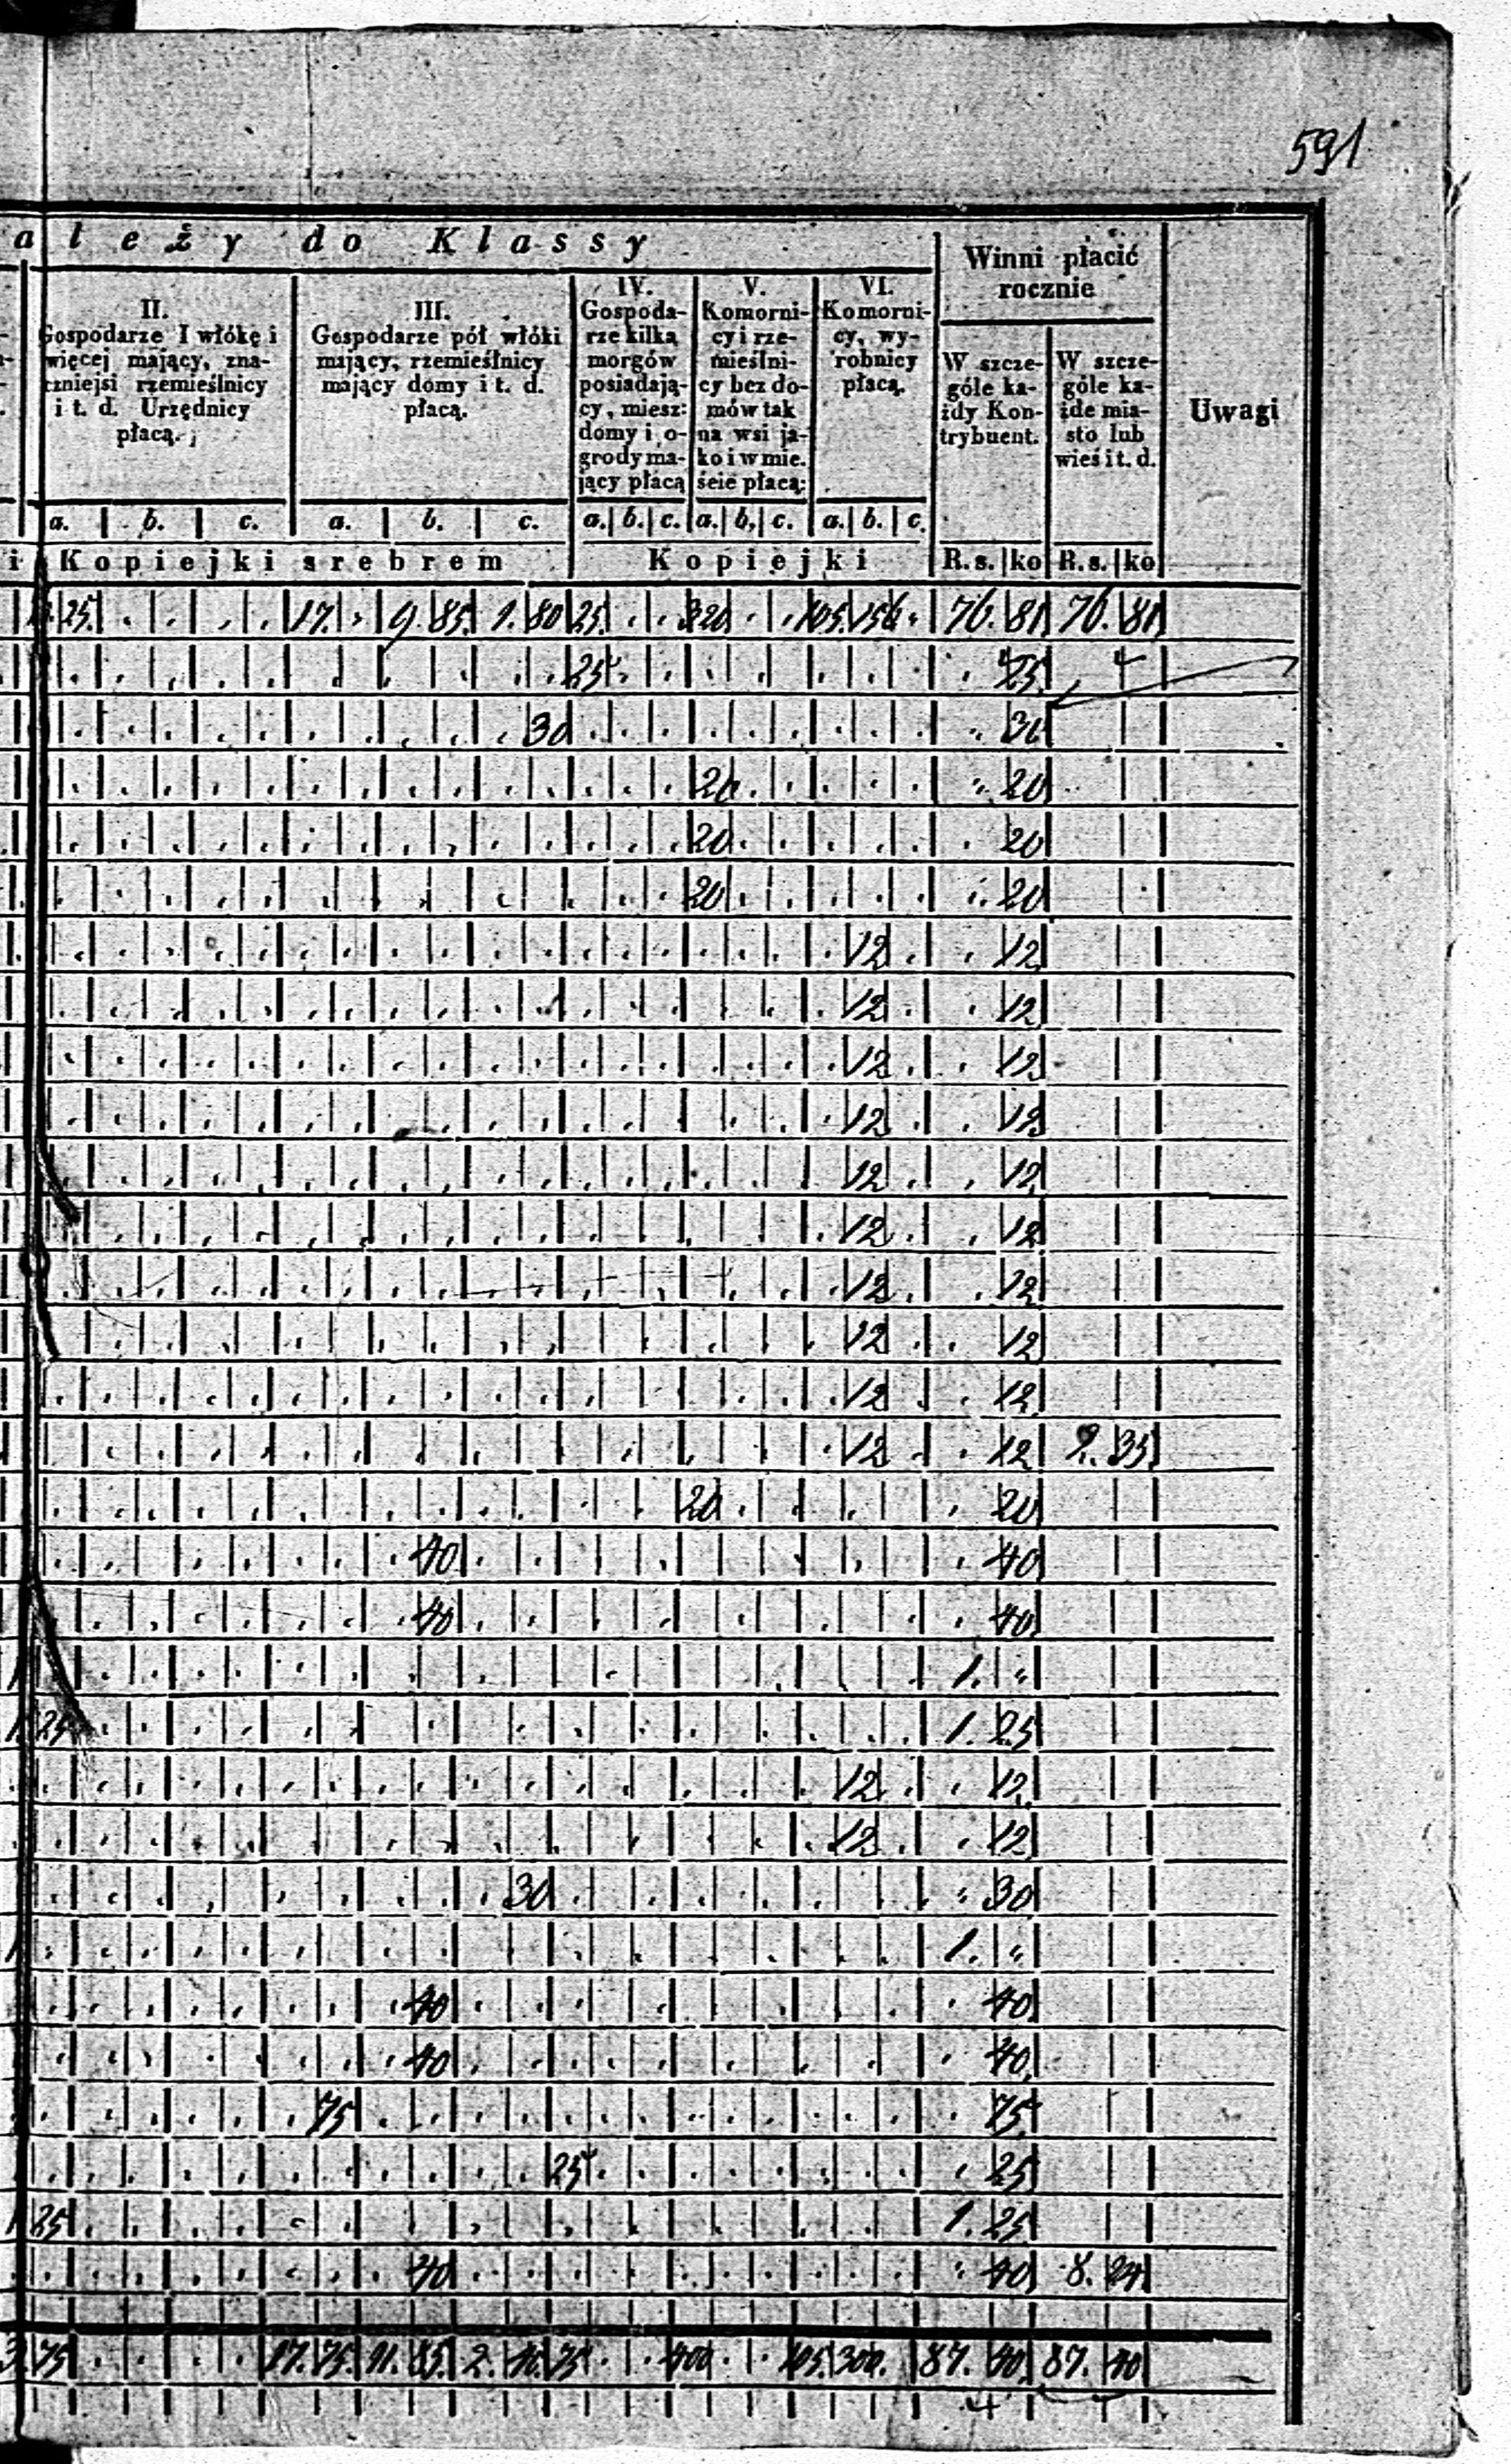 591
ależy do Klassy
Winni płacić
rocznie
Uwagi
II.
Gospodarze I włókę i
więcej mający, zna-
czniejsi rzemieślnicy
i t. d. Urzędnicy
płacą.
III.
Gospodarze pół włóki
mający, rzemieślnicy
mający domy i t. d.
płacą.
IV.
Gospoda-
rze kilka
morgów
posiadają-
cy, miesz:
domy i o-
grody ma-
jący płacą
V.
Komorni-
cy i rze-
mieślni-
cy bez do-
mów tak
na wsi ja-
ko i w mie.
ście płacą:
VI.
Komorni-
cy, wy-
robnicy
płacą.
W szcze-
góle ka-
żdy Kon-
trybuent.
W szcze-
góle ka-
żde mia-
sto lub
wieś i t. d.
a. b. c. a. b. c. a. b. c. a. b. c. a. b. c.
i Kopiejki srebrem Kopiejki R. s. ko R. s. ko
25. 17. 9 85. 1. 80 25. 320 105. 156 76. 81 76. 81
25 25
30 30
20 20
20 20
20 20
12 12
12 12
12 12
12 12
12 12
12 12
12 12
12 12
12 12
12 12 2. 35
20 20
40 40
40 40
1. "
1 25 1. 25
12 12
12 12
30 30
1 1. "
40 40
40 40
75 75
25 25
1 25 1. 25
40 40 8. 24
3 75 17. 75. 11. 85. 2. 10. 75 400 105. 300. 87. 40 87. 40